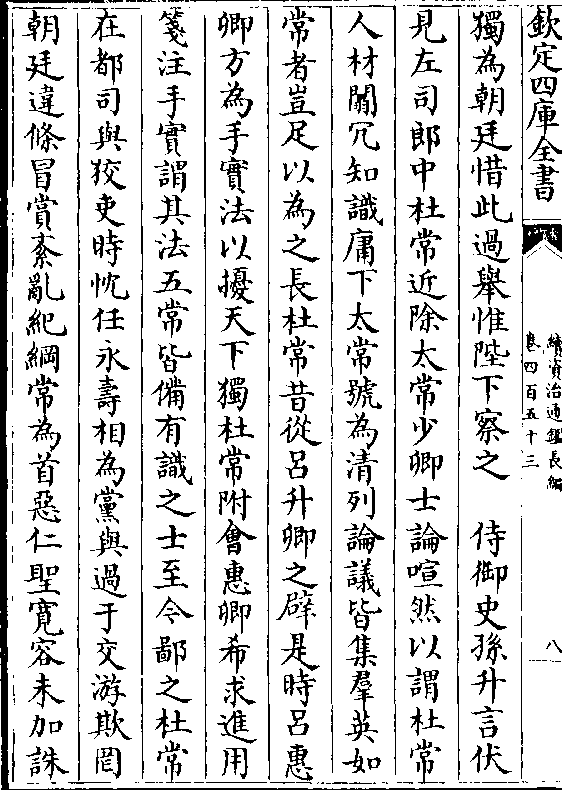 欽定四庫全書
續資治通鑑長編
卷四百五十三
八
獨為朝廷惜此過舉惟陛下察之　侍御史孫升言伏
見左司郎中杜常近除太常少卿士論喧然以謂杜常
人材闒冗知識庸下太常號為清列論議皆集羣英如
常者豈足以為之長杜常昔從呂升卿之辟是時呂惠
卿方為手實法以擾天下獨杜常附會惠卿希求進用
箋注手實謂其法五常皆備有識之士至今鄙之杜常
在都司與狡吏時忱任永壽相為黨與過于交游欺罔
朝廷違條冒賞紊亂紀綱常為首惡仁聖寛容未加誅